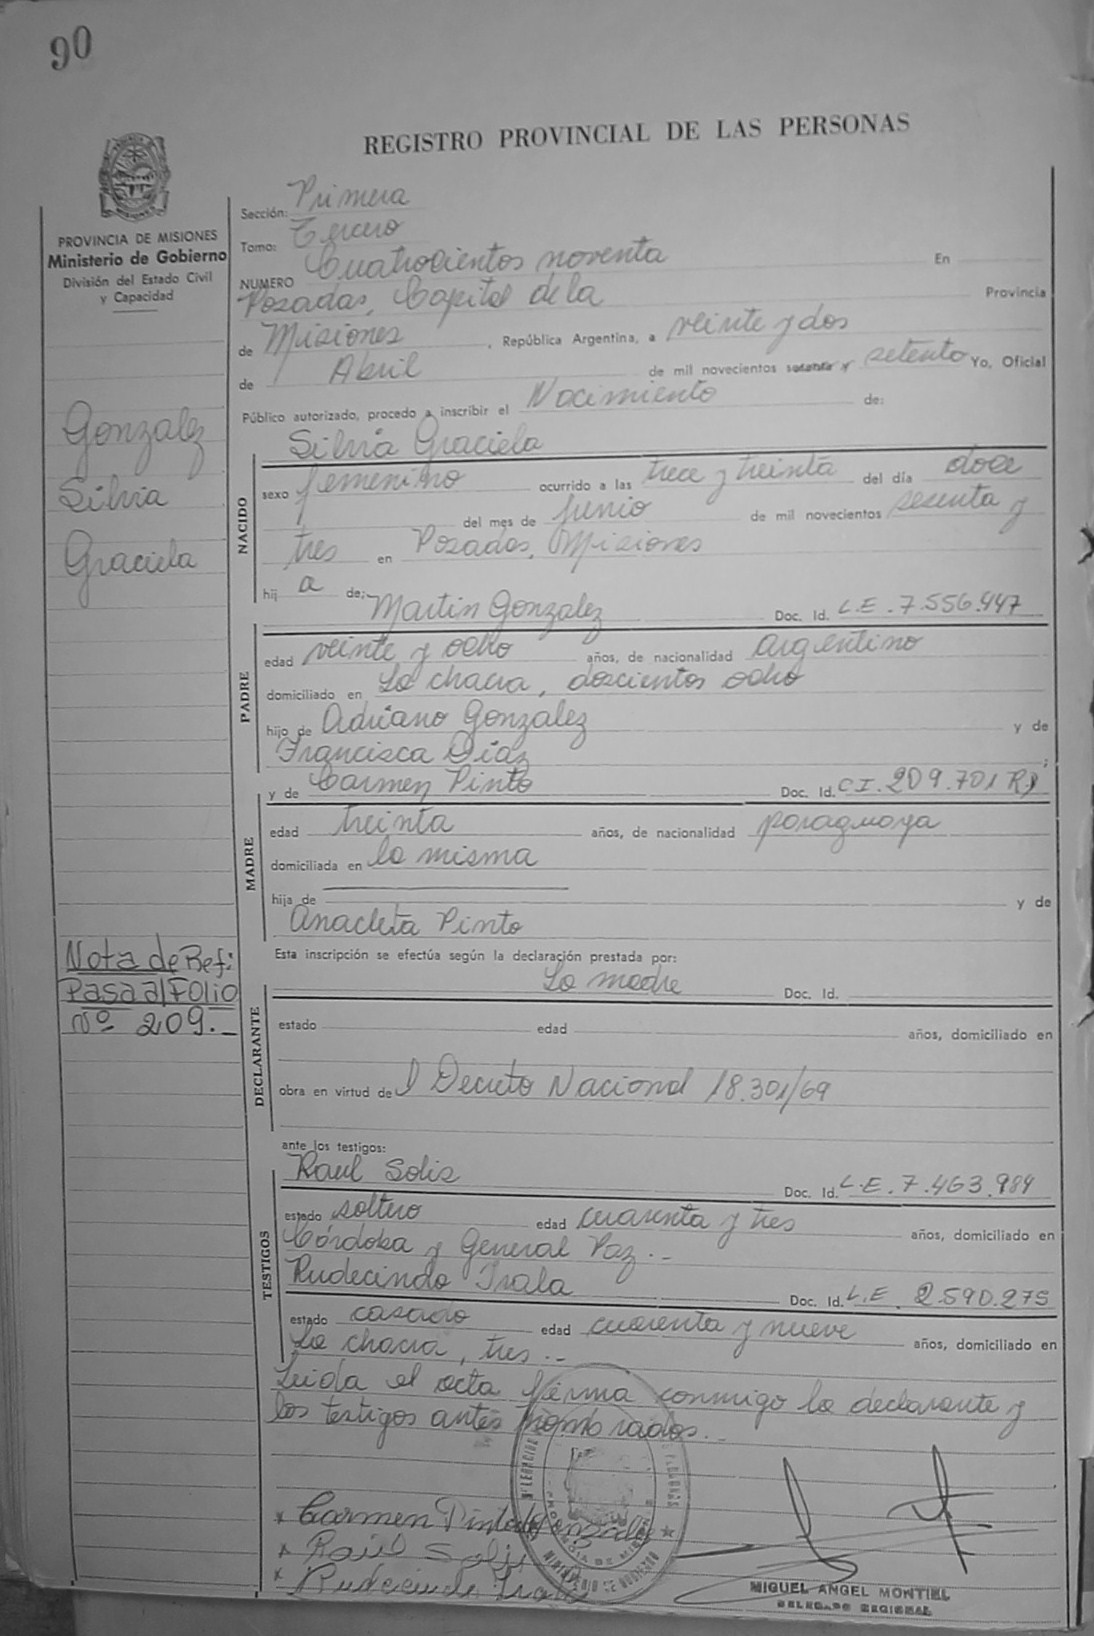 90
REGISTRO PROVINCIAL DE LAS PERSONAS
PROVINCIA DE MISIONES
Ministerio de Gobierno
División del Estado Civil
y Capacidad
Sección: Primera
Tomo: Tercero
NUMERO Cuatrocientos noventa En
Posadas, Capital de la Provincia
de Misiones, República Argentina, a veinte y dos
de Abril de mil novecientos setenta y setenta Yo, Oficial
Público autorizado, procedo a inscribir el Nacimiento de:
Gonzalez
Silvia
Graciela
NACIDO
Silvia Graciela
sexo femenino ocurrido a las trece y treinta del día doce
del mes de junio de mil novecientos sesenta y
tres en Posadas, Misiones
hij a de: Martin Gonzalez Doc. Id. L.E. 7.556.447
PADRE
edad veinte y ocho años, de nacionalidad argentino
domiciliado en La chacra, doscientos ocho
hijo de Adriano Gonzalez y de
Francisca Díaz ;
y de Carmen Pinto Doc. Id. C.I. 209.701 R)
MADRE
edad treinta años, de nacionalidad paraguaya
domiciliada en la misma
hija de y de
Anacleta Pinto
Esta inscripción se efectúa según la declaración prestada por:
La madre Doc. Id.
Nota de Ref:
Pasa al Folio
Nº 209.-
DECLARANTE
estado edad años, domiciliado en
obra en virtud de l Decreto Nacional 18.301/69
ante los testigos:
Raul Solis Doc. Id. L.E. 7.463.984
TESTIGOS
estado soltero edad cuarenta y tres años, domiciliado en
Córdoba y General Paz.-
Rudecindo Irala Doc. Id. L.E. 2.590.275
estado casado edad cuarenta y nueve años, domiciliado en
La chacra, tres.-
Leida el acta firma conmigo la declarante y
los testigos antes nombrados.-
* Carmen Pinto de Gonzalez
* Raúl Solis
* Rudecindo Irala
MINISTERIO DE GOBIERNO
PROVINCIA DE MISIONES
MIGUEL ANGEL MONTIEL
DELEGADO REGIONAL